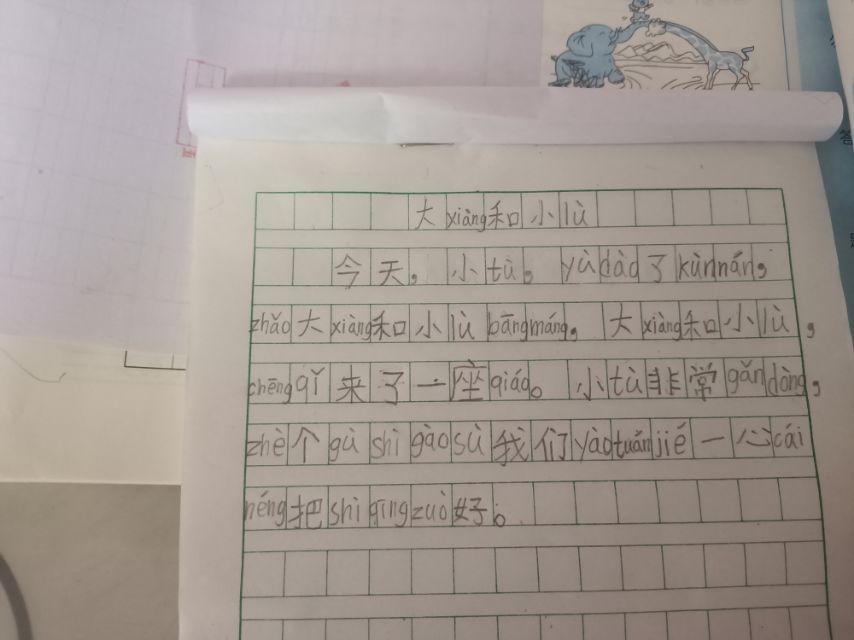 大xiàng和小lù
今天，小tù。yù dào了kùn nán，
zhǎo大xiàng和小lù bāng máng。大xiàng和小lù，
chēng qǐ来了一座qiáo。小tù非常gǎn dòng，
zhè个gù shì gào sù我们yào tuán jié一心cái
néng把shì qīng zuò好。